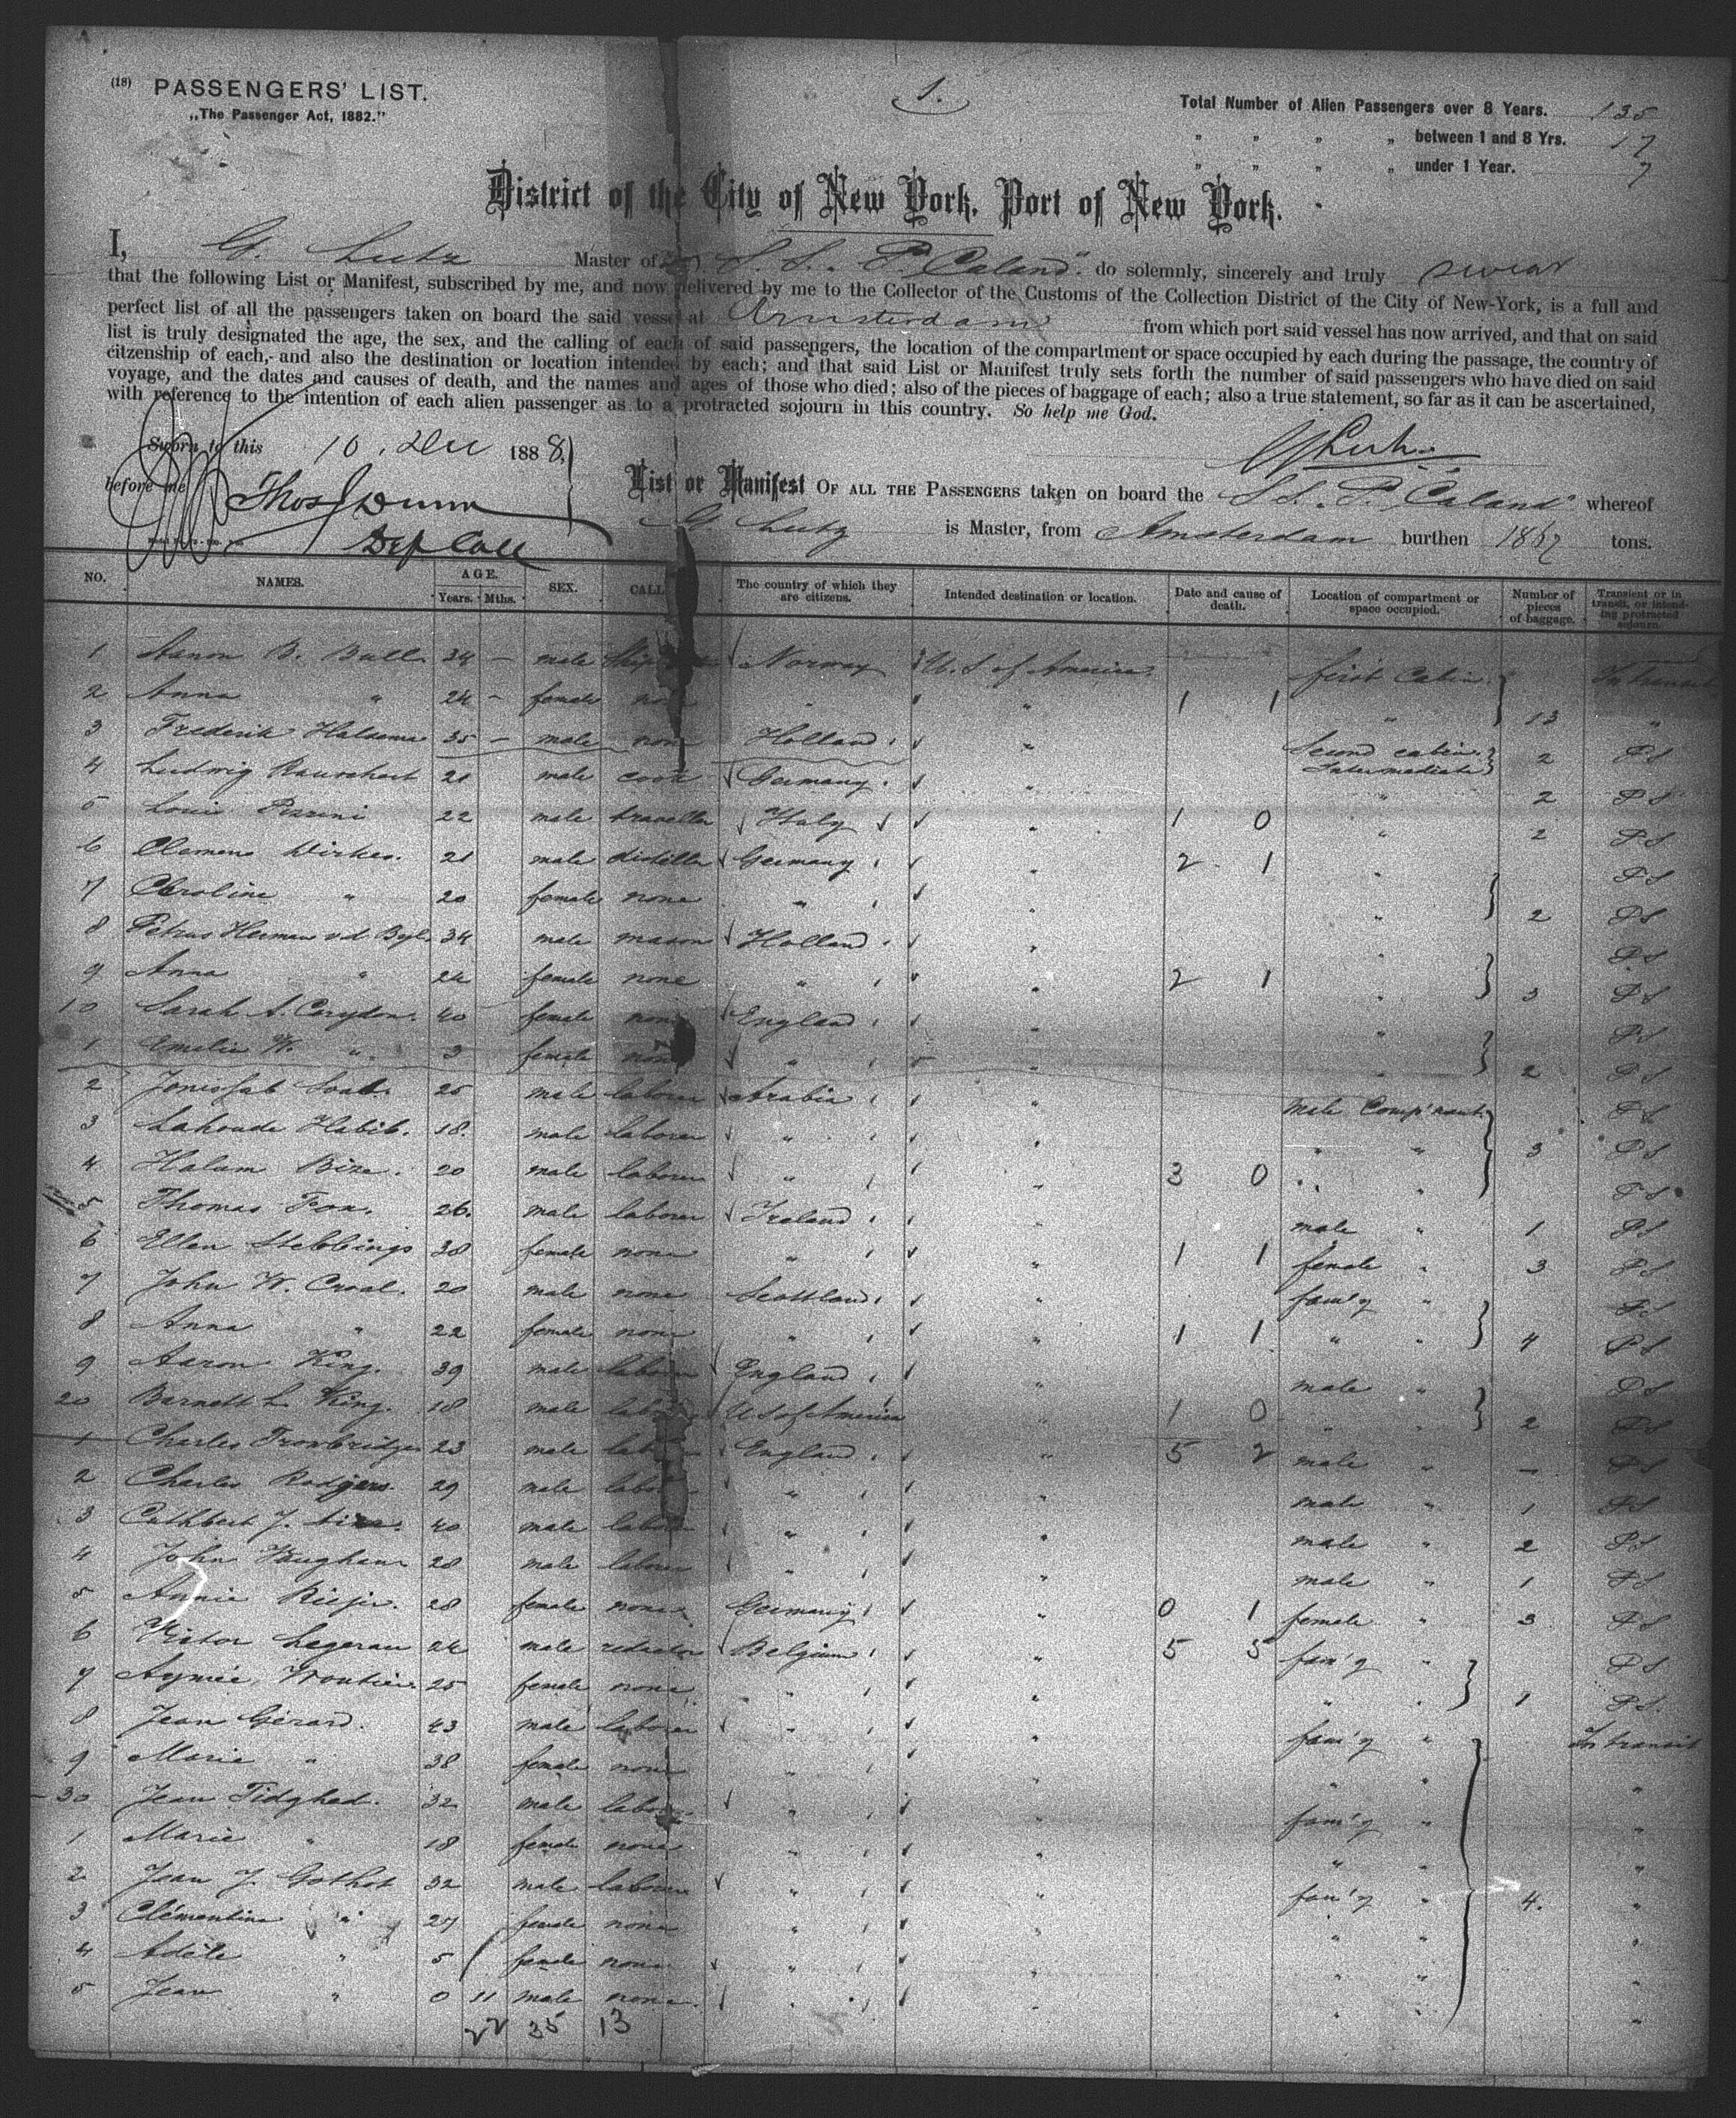 (18) PASSENGERS' LIST.
„The Passenger Act, 1882."
1.
Total Number of Alien Passengers over 8 Years. 135
" " " „ between 1 and 8 Yrs. 17
" " " „ under 1 Year. 7
District of the City of New York, Port of New York.
I, G. Lutz Master of S.S. "P. Caland" do solemnly, sincerely and truly swear
that the following List or Manifest, subscribed by me, and now delivered by me to the Collector of the Customs of the Collection District of the City of New-York, is a full and
perfect list of all the passengers taken on board the said vessel at Amsterdam from which port said vessel has now arrived, and that on said
list is truly designated the age, the sex, and the calling of each of said passengers, the location of the compartment or space occupied by each during the passage, the country of
citzenship of each, and also the destination or location intended by each; and that said List or Manifest truly sets forth the number of said passengers who have died on said
voyage, and the dates and causes of death, and the names and ages of those who died; also of the pieces of baggage of each; also a true statement, so far as it can be ascertained,
with reference to the intention of each alien passenger as to a protracted sojourn in this country. So help me God.
Sworn to this 10. Dec 1888,
G Lutz
before me Thos J Dunn
Dep Coll
List or Manifest OF ALL THE PASSENGERS taken on board the S.S. "P. Caland" whereof
G Lutz is Master, from Amsterdam burthen 1867 tons.
NO. NAMES. AGE. Years. Mths. SEX. CALL The country of which they are citizens. Intended destination or location. Date and cause of death. Location of compartment or space occupied. Number of pieces of baggage. Transient or in transit, or intending protracted sojourn.
1 Aanon B. Bull 34 – male Ship Norway U.S of America first Cabin In transit
2 Anna " 24 – female none " " 1 1 " 13 "
3 Frederik 35 – male none Holland " Second cabin Intermediate 2 PS
4 Ludwig Rauschert 21 male cook Germany " " 2 PS
5 Louis 22 male traveller Italy " 1 0 " 2 PS
6 Clemens Dirkes. 21 male distiller Germany " 2 1 " PS
7 Caroline " 20 female none " " " 2 PS
8 Petrus Herman v.d. Byl 34 male mason Holland " " PS
9 Anna " 24 female none " " 2 1 " 3 PS
10 Sarah A. Corydon. 40 female none England " " PS
1 Emelie W. " 3 female none " " " 2 PS
2 25 male laborer Arabia " male Comp'ment PS
3 Lahoude Habib. 18. male laborer " " " " 3 PS
4 Halum 20 male laborer " " 3 0 " " PS
5 Thomas Fox. 26. male laborer Ireland " male " 1 PS
6 Ellen Stebbings 38 female none " " 1 1 female " 3 PS
7 John W. Croal. 20 male none Scottland " fam'y " PS
8 Anna " 22 female none " " 1 1 " " 4 PS
9 Aaron King. 39 male laborer England " male " PS
20 Barnett L. King. 18 male laborer U S of America " 1 0 " " 2 PS
1 Charles Trowbridge 23 male laborer England " 5 2 male " – PS
2 Charles Rodgers. 29 male laborer " " male " 1 PS
3 Cuthbert J. 40 male laborer " " male " 2 PS
4 John Vaughan 28 male laborer " " male " 1 PS
5 Annie 28 female none Germany " 0 1 female " 3 PS
6 Victor Legerau 24 male redactor Belgium " 5 5 fam'y " PS
7 Aymée 25 female none " " " " 1 PS.
8 Jean Gérard. 43 male laborer " " fam'y " In transit
9 Marie " 38 female none " " " " "
30 Jean Tidghad. 32 male laborer " " fam'y " "
1 Marie " 18 female none " " " " "
2 Jean J. Gothot 32 male laborer " " fam'y " 4. "
3 Clémentine " 27 female none " " " " "
4 Adèle " 5 female none " " " " "
5 Jean " 0 11 male none. " " " " "
22 35 13